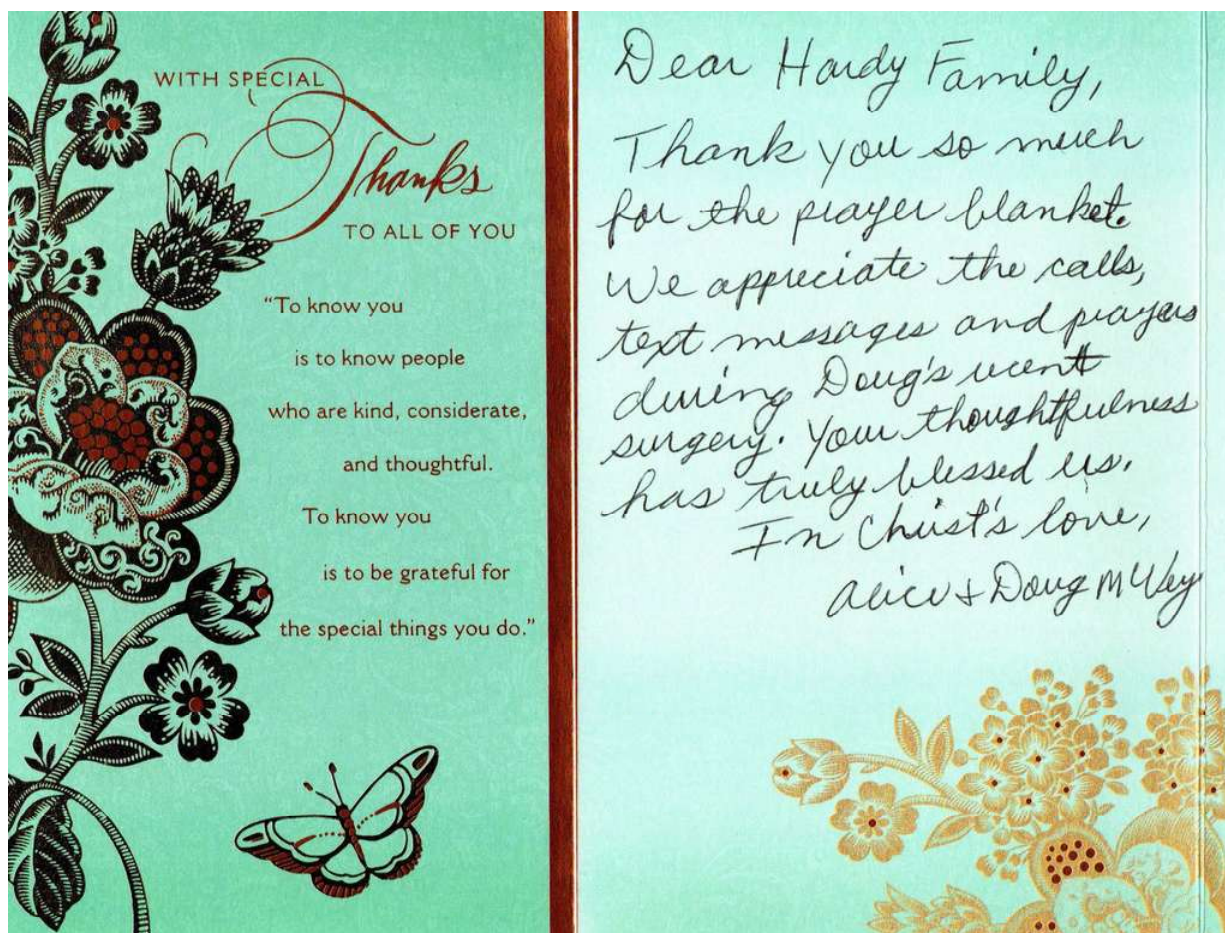 WITH SPECIAL
Thanks
TO ALL OF YOU
“To know you
is to know people
who are kind, considerate,
and thoughtful.
To know you
is to be grateful for
the special things you do.”
Dear Hardy Family,
Thank you so much
for the prayer blanket.
We appreciate the calls,
text messages and prayers
during Doug's recent
surgery. Your thoughtfulness
has truly blessed us.
In Christ's love,
Alice & Doug McVey